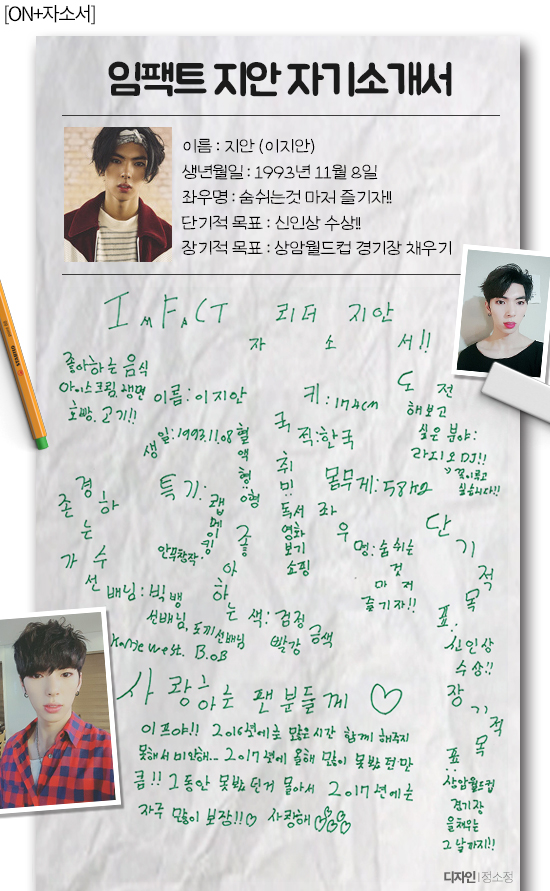 [ON+자소서]
임팩트 지안 자기소개서
이름 : 지안 (이지안)
생년월일 : 1993년 11월 8일
좌우명 : 숨쉬는것 마저 즐기자!!
단기적 목표 : 신인상 수상!!
장기적 목표 : 상암월드컵 경기장 채우기
IMFACT 리더 지안
자 소 서!!
좋아하는 음식
아이스크림, 냉면
호빵, 고기!!
이름: 이지안
생일: 1993.11.08
혈액형: O형
키: 174cm
국적: 한국
몸무게: 58kg
도전
해보고
싶은 분야:
라디오 DJ!!
→ 꼭 이루고
싶습니다!!
존경하는 가수
선배님: 빅뱅
선배님, 도끼 선배님
Kanye west. B.O.B
특기: 랩메이킹
안무창작.
취미: 독서
영화
보기
쇼핑
좌우명: 숨쉬는
것
마저
즐기자!!
좋아하는 색: 검정
빨강 금색
단기적
목표:
신인상
수상!!
장기적
목표:
상암월드컵
경기장
을 채우는
그날까지!!
사랑하는 팬분들께 ♡
이프야!! 2016년에는 많은시간 함께 해주지
못해서 미안해... 2017년에 올해 많이 못봤던만
큼!! 그동안 못봤던거 몰아서 2017년에는
자주 많이 보장!!♡ 사랑해♡♡♡♡
디자인 | 정소정